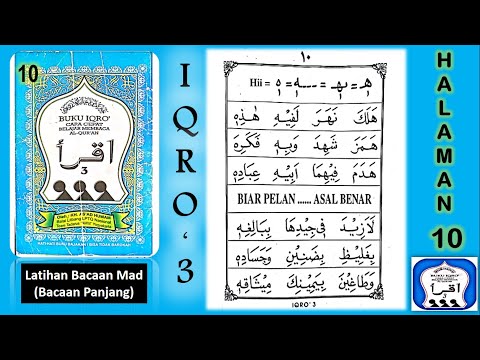 10
BUKU IQRO'
CARA CEPAT
BELAJAR MEMBACA
AL-QUR'AN
اقرأ
3
Latihan Bacaan Mad
(Bacaan Panjang)
IQRO'3
١٠
Hii = ه = ـهـ = ـه
هَلَكَ نَهَرَ لَفِيْهِ هٰذِهٖ
هَمَزَ شَهِدَ وَبِهٖ فَكَرِهَ
هَدَمَ فِيْهِمَا اَبِيْهِ عِبَادِهٖ
BIAR PELAN ...... ASAL BENAR
لَازِيْدَ فِيْ جِيْدِهَا بِبَالِغِهٖ
بِغَلِيْظٍ بِضَنِيْنٍ وَحَسَادِهٖ
وَطَاغِيْنَ بِيَمِيْنِكَ مِيْثَاقِهٖ
IQRO' 3
HALAMAN 10
BUKU IQRO'
اقرأ
3